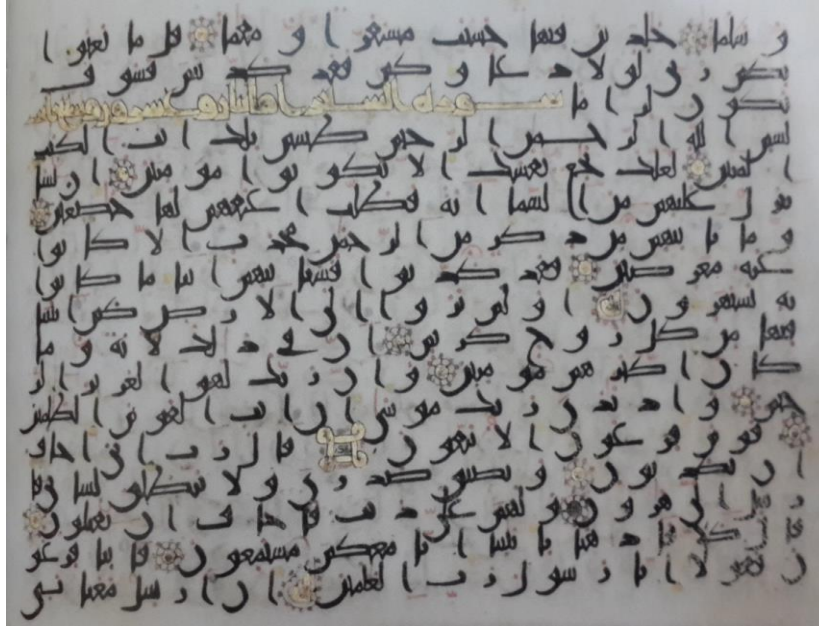 و سلما خلدين فيها حسنت مستقرا و مقاما قل ما يعبوا
بكم ربي لولا دعاوكم فقد كذبتم فسوف
يكون لزاما سورة الشعرا مائتان وعشرون
بسم الله الرحمن الرحيم طسم تلك ايت الكتب
المبين لعلك بخع نفسك الا يكونوا مومنين ان نشا
ننزل عليهم من السما اية فظلت اعنقهم لها خضعين
و ما ياتيهم من ذكر من الرحمن محدث الا كانوا
عنه معرضين فقد كذبوا فسياتيهم انبوا ما كانوا
به يستهزون اولم يروا الى الارض كم انبتنا
فيها من كل زوج كريم ان في ذلك لاية و ما
كان اكثرهم مومنين و ان ربك لهو العزيز الر
حيم و اذ نادى ربك موسى ان ايت القوم الظلمين
قوم فرعون الا يتقون قال رب اني اخاف
ان يكذبون و يضيق صدري ولا ينطلق لساني فا
رسل الى هرون و لهم علي ذنب فاخاف ان يقتلون
قال كلا فاذهبا بايتنا انا معكم مستمعون فاتيا فرعو
ن فقولا انا رسول رب العلمين ان ارسل معنا بني